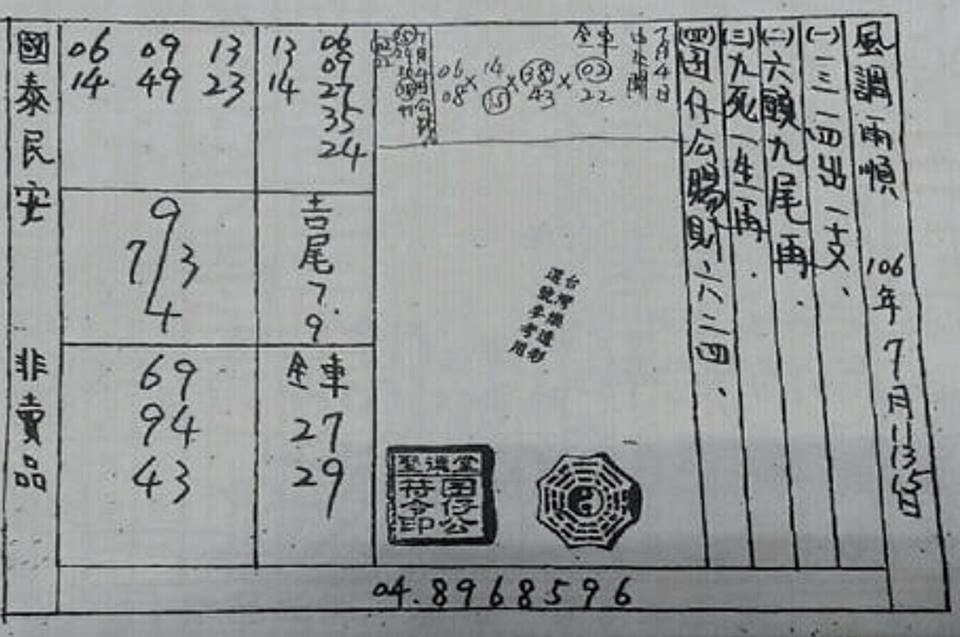 風調雨順 106年 7月11 13 15日
(一)一三一四出一支、
(二)六頭九尾再.
(三)九死一生再.
(四)囝仔公賜財六二四、
7月4日
全車
02
22
38
43
14
15
06
08
×
×
×
台灣樂透彩
選號參考用
聖德堂
囝仔公
符令印
13 06
14 09
27
35
24
吉尾
7.
9.
全車
27
29
06 09 13
14 49 23
9
7/3
4
69
94
43
國泰民安 非賣品
04.8968596